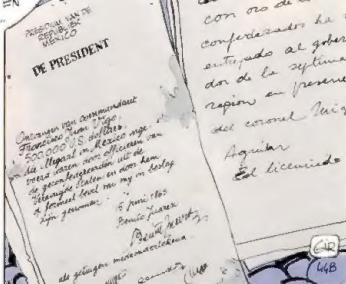 EN
PRESIDIUM VAN DE
REPUBLIEK
MEXICO
DE PRESIDENT
Ontvangen van commandant
Francisco Juan Vigo:
500.000 U.S. dollars,
die illegaal in Mexico inge-
voerd waren door officieren van
de geconfedereerden uit de
Verenigde Staten en door hem
op formeel bevel van mij in beslag
zijn genomen.
15 juni 1865
Benito Juarez
als getuigen medeondertekend
con oro de
confederados ha
entregado al gober
dor de la septima
region en presen
del coronel Mig
Aguilar
El licenciado
GIR
44B